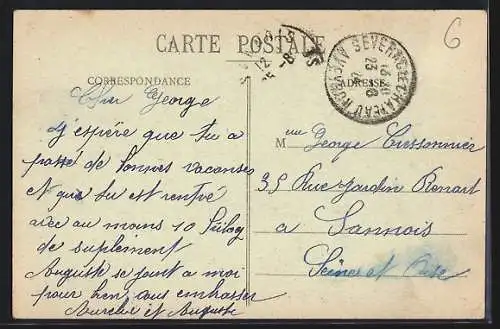 CARTE POSTALE
CORRESPONDANCE
ADRESSE
SEVERAC-LE-CHATEAU AVEYRON
Cher George
J'espère que tu a
passé de bonnes vacances
et que tu est rentré
avec au moins 10 kilog
de suplement
Auguste se joint a moi
pour bien vous embrasser
Aurelie et Auguste
M George Cressonnier
35 Rue Jardin Renart
a Sannois
Seine et Oise
6